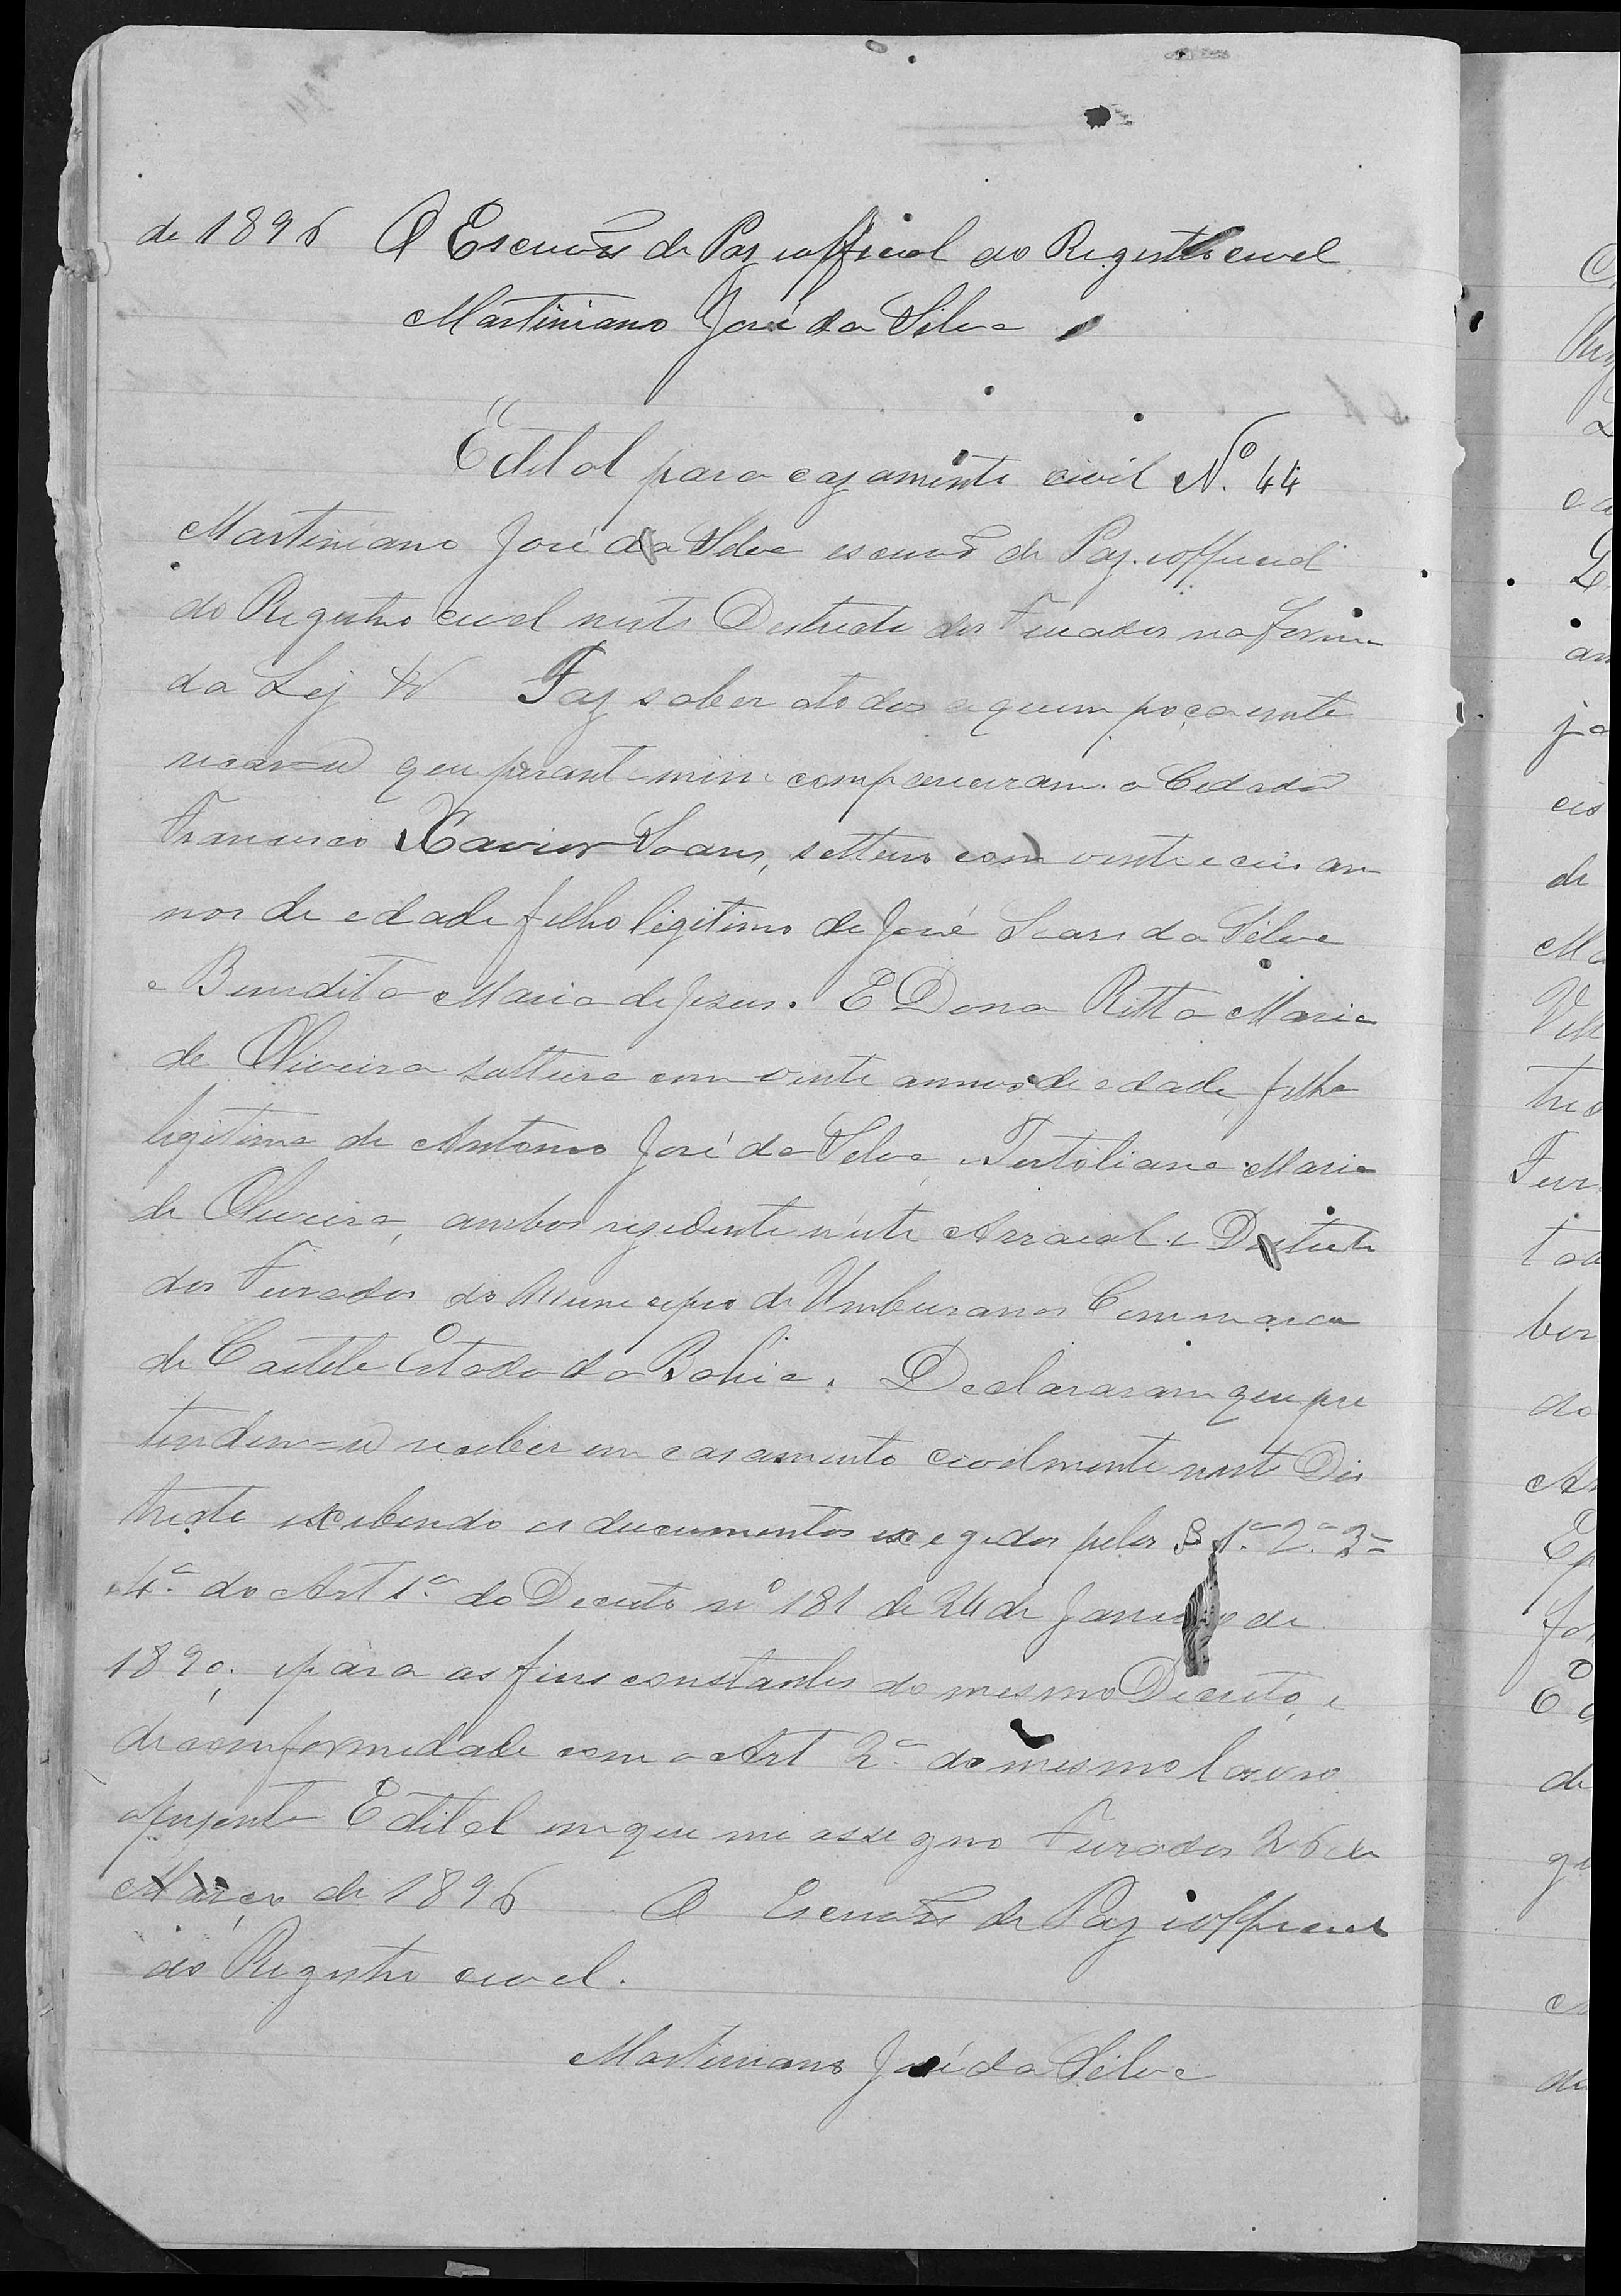 de 1896 O Escrivão de Paz e official do Registro civel
Martiniano José da Silva
Edital para cazamento civil Nº 44
Martiniano José da Silva escrivão de Paz. e official
do Registro civel neste Destricto dos Furados na forma
da Lej &. Faz saber a todos a quem poça ente
recar=se que perante mim compareceram o Cidadão
Francisco Xavier Soares, solteiro com vinte e ceis an
nos de edade filho legitimo de José Soares da Silva
e Benedita Maria de Jezus. E Dona Ritta Maria
de Oliveira solteira com vinte annos de edade, filha
legitima de Antonio José da Silva, e Tertoliana Maria
de Oliveira, ambos rezidente n'este Arraial e Destricto
dos Furados do Municipio de Umburanas Commarca
de Caetete Estado da Bahia. Declararam que pre
tendem=se receber em casamento civelmente neste Dis
tricto excibindo os documentos exegedos pelos § 1º. 2º. 3º
e 4º. do Art 1º. do Decreto nº 181 de 24 de Janeiro de
1890; e para os fins constantes do mesmo Decreto, e
de comformedade com o Art 2º. do mesmo lavro
o prezente Edital em que me assegno Furados 26 de
Março de 1896 O Escrivão de Paz e official
do Registro civel.
Martiniano José da Silva